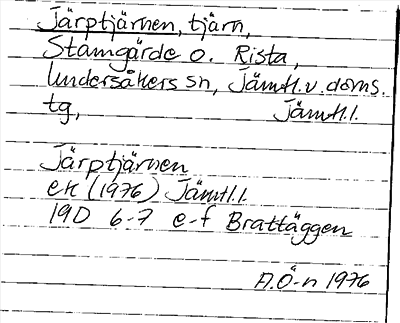 Järptjärnen, tjärn,
Stamgärde o. Rista,
Undersåkers sn, Jämtl. v. doms.
tg, Jämtl. l.
Järptjärnen
ek (1976) Jämtl. l.
19D 6-7 e-f Brattäggen
A.Ö-n 1976